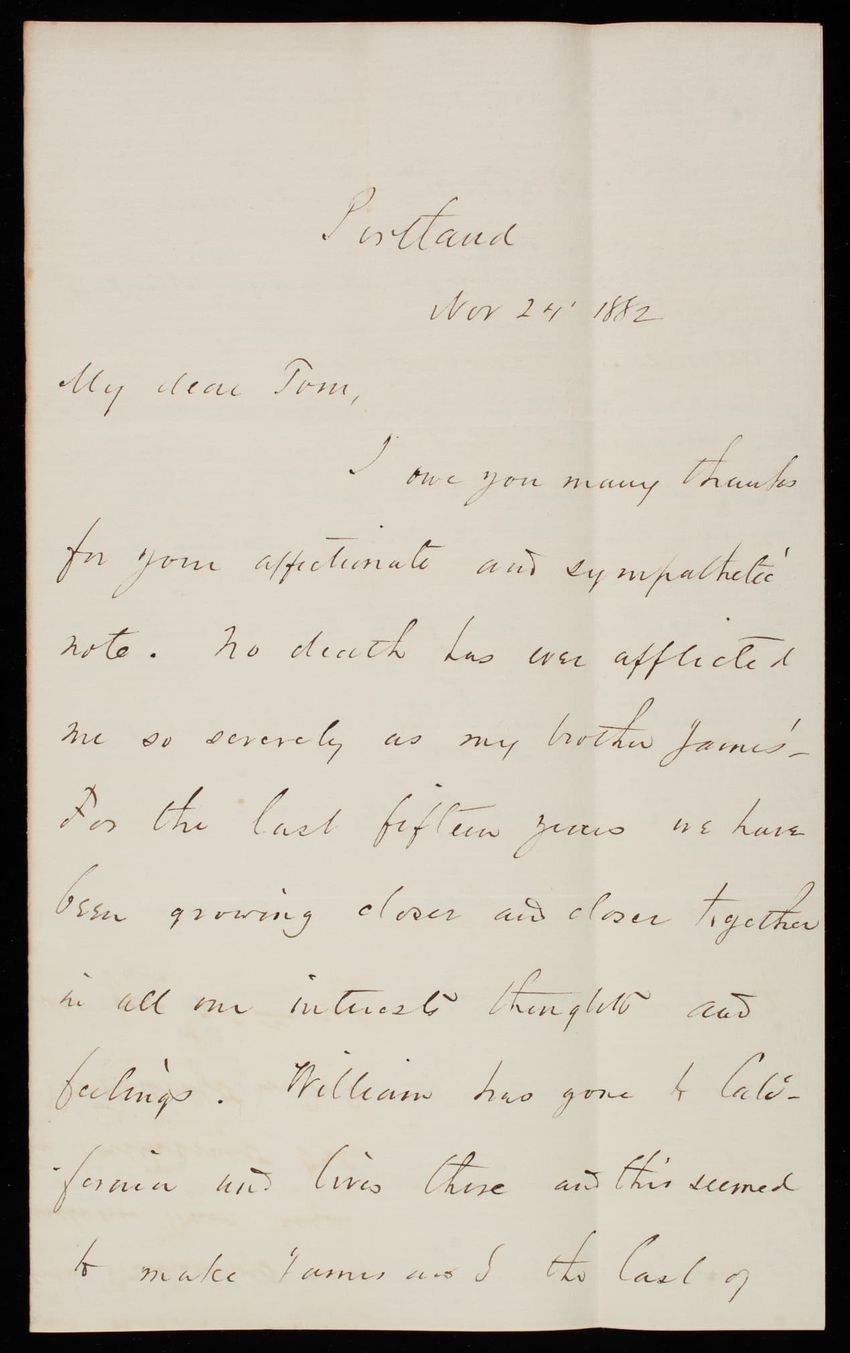 Portland
Nov 24' 1882
My dear Tom,
I owe you many thanks
for your affectionate and sympathetic
note. No death has ever afflicted
me so severely as my brother James'-
For the last fifteen years we have
been growing closer and closer together
in all our interests thoughts and
feelings. William has gone to Cali-
-fornia and lives there and this seemed
to make James and I the last of